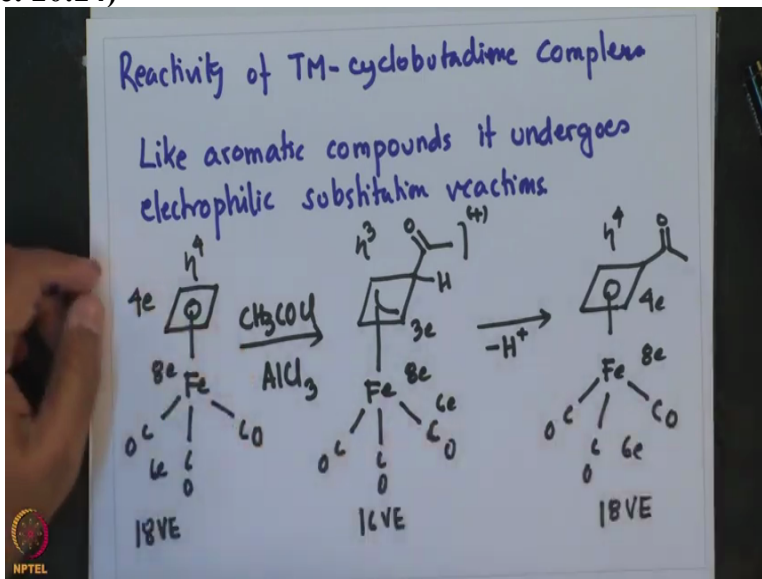 Reactivity of TM-cyclobutadiene complexes
Like aromatic compounds it undergoes
electrophilic substitution reactions
η⁴
4e
8e Fe
OC
CO
6e
C
O
18VE
CH₃COCl
AlCl₃
η³
O
](+)
H
3e
Fe 8e
6e
OC
C
O
CO
16VE
-H⁺
η⁴
O
4e
Fe 8e
OC
C
O
CO
6e
18VE
NPTEL